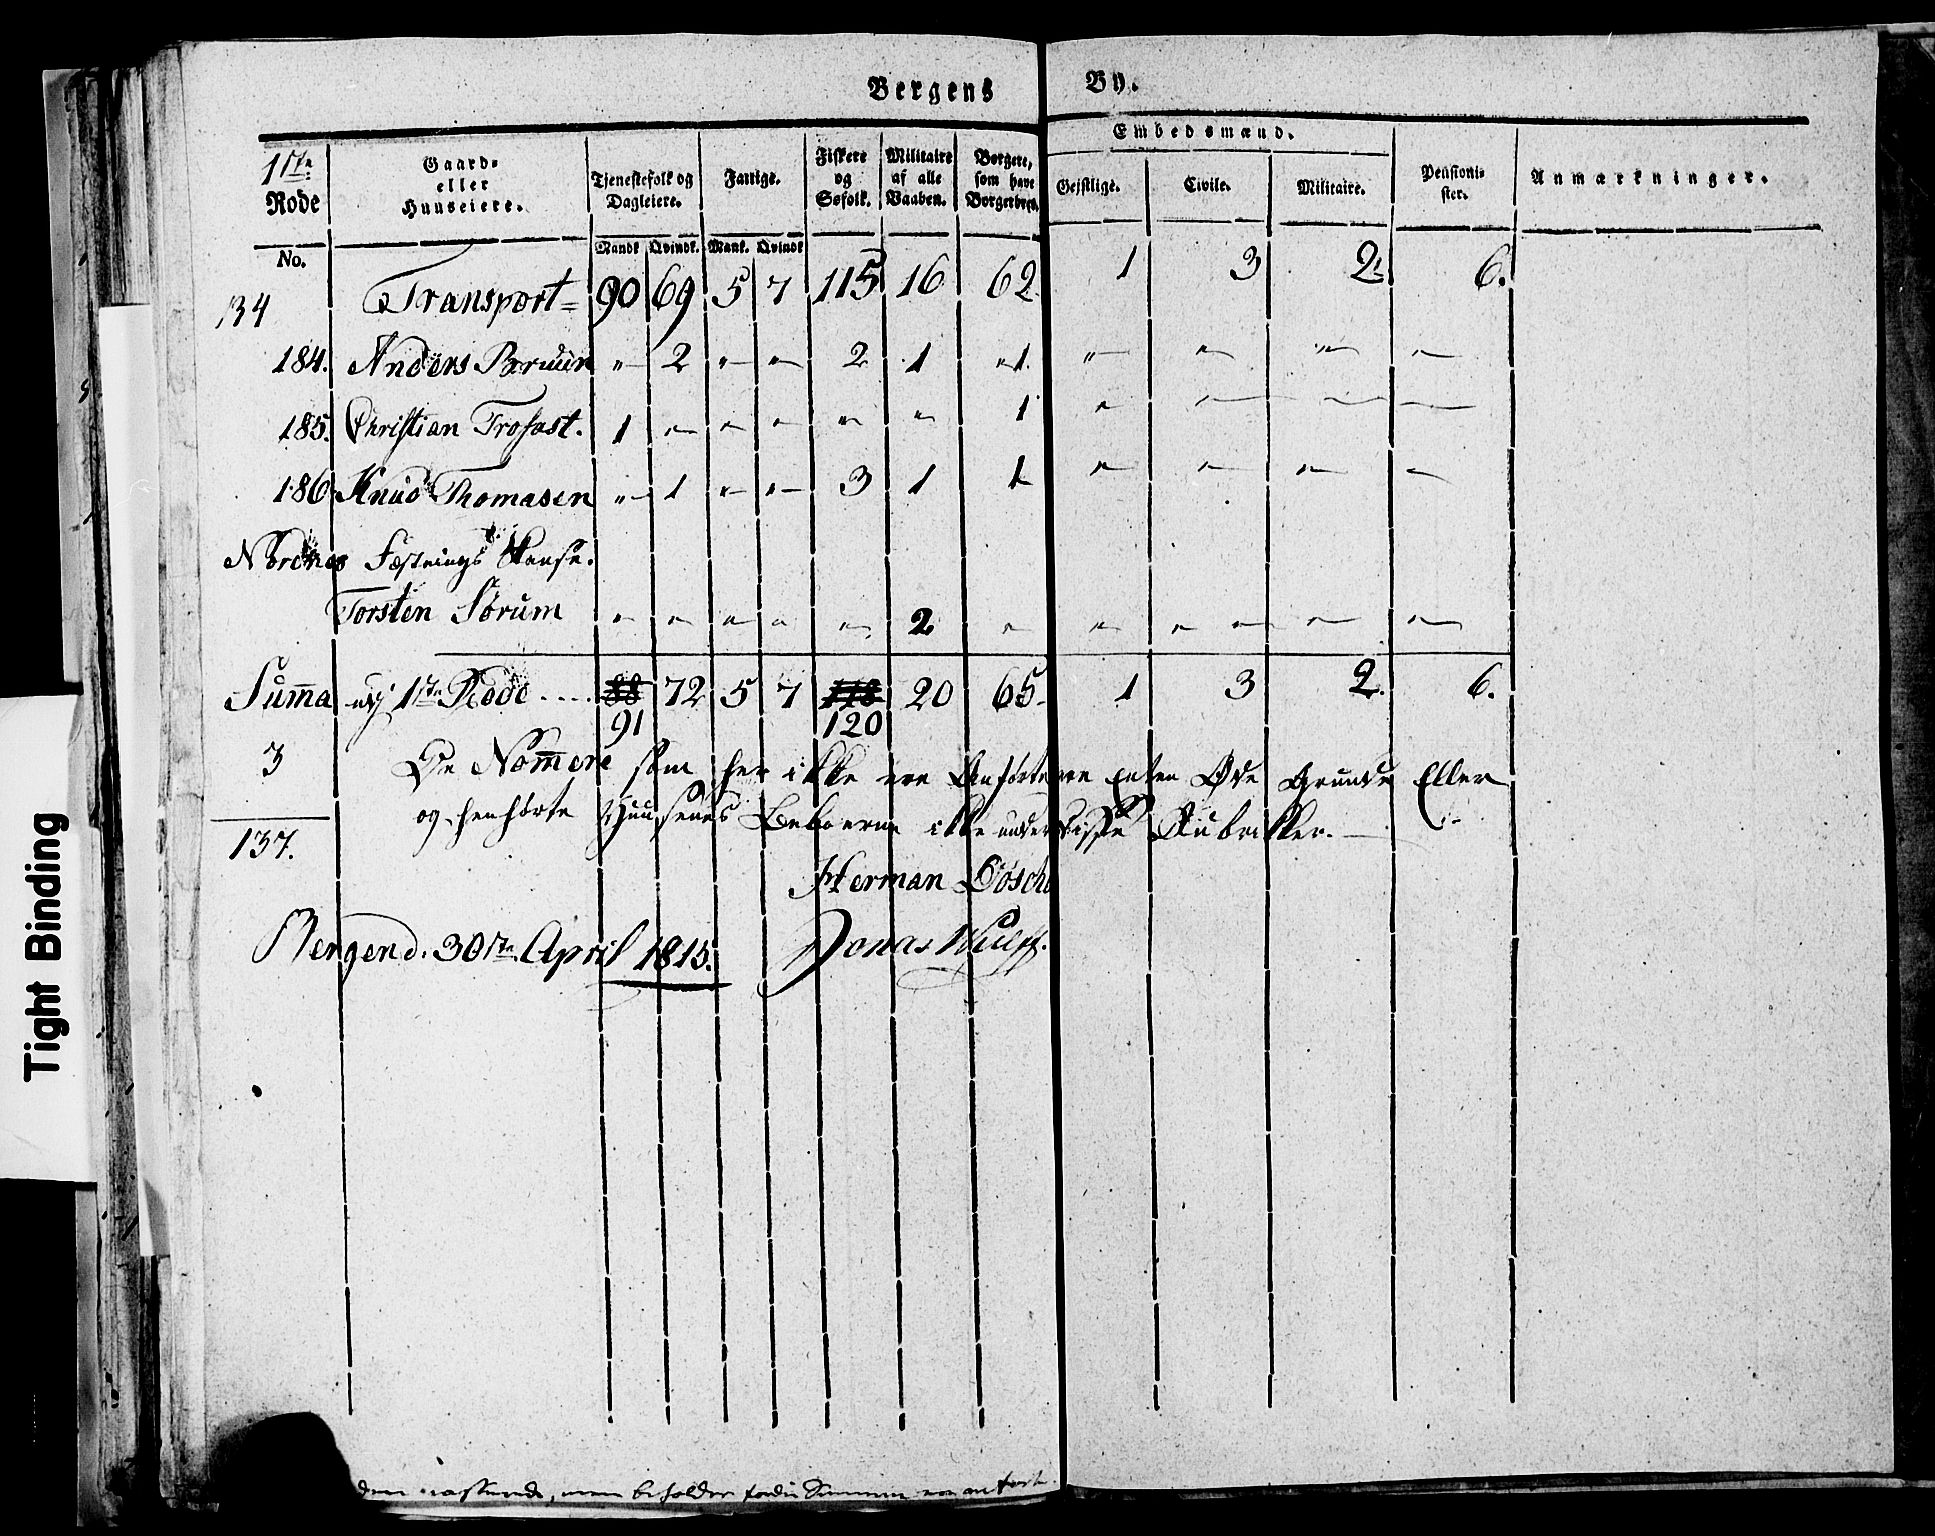 Bergens By.
1ste Rode
Gaard- eller Huuseiere.
Tjenestefolk og Dagleiere.
Fattige.
Fiskere og Søfolk.
Militaire af alle Vaaben.
Borgere, som have Borgerbrev.
Embedsmænd.
Gejstlige. Civile. Militaire.
Pensionister.
Anmærkninger.
No. Mandk. Qvindk. Mank. Qvindk.
134 Transport 90 69 5 7 115 16 62 1 3 2 6.
184. Anders Bruun " 2 " " 2 1 1. " " " "
185. Christian Trofast. 1 " " " " " 1 " " " "
186 Knud Thomasen " 1 " " 3 1 1 " " " "
Nordnes Fæstnings Skanse.
Torsten Sørum " " " " " 2 " " " " " "
Summa udj 1ste Rode .... 88 72 5 7 118 20 65 1 3 2. 6.
91 120
3 De Nomere som her ikke ere Anførte ere Enten Øde Grunde Eller
og henhørte Huusenes Beboerne ikke under disse Rubrikker.
137.
Herman Bøsche
Bergen d. 30te April 1815. Jonas Wulff.
men beholder
Tight Binding